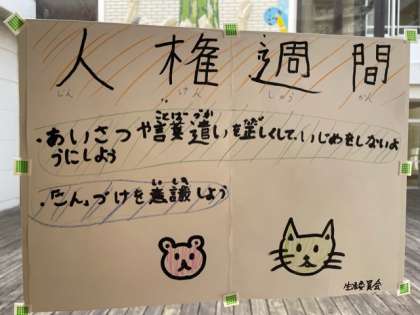 人権週間
じん けん しゅう かん
ことば づか
・あいさつや言葉遣いを正しくして、いじめをしないよ
うにしよう
いしき
・こん、づけを意識しよう
生活委員会